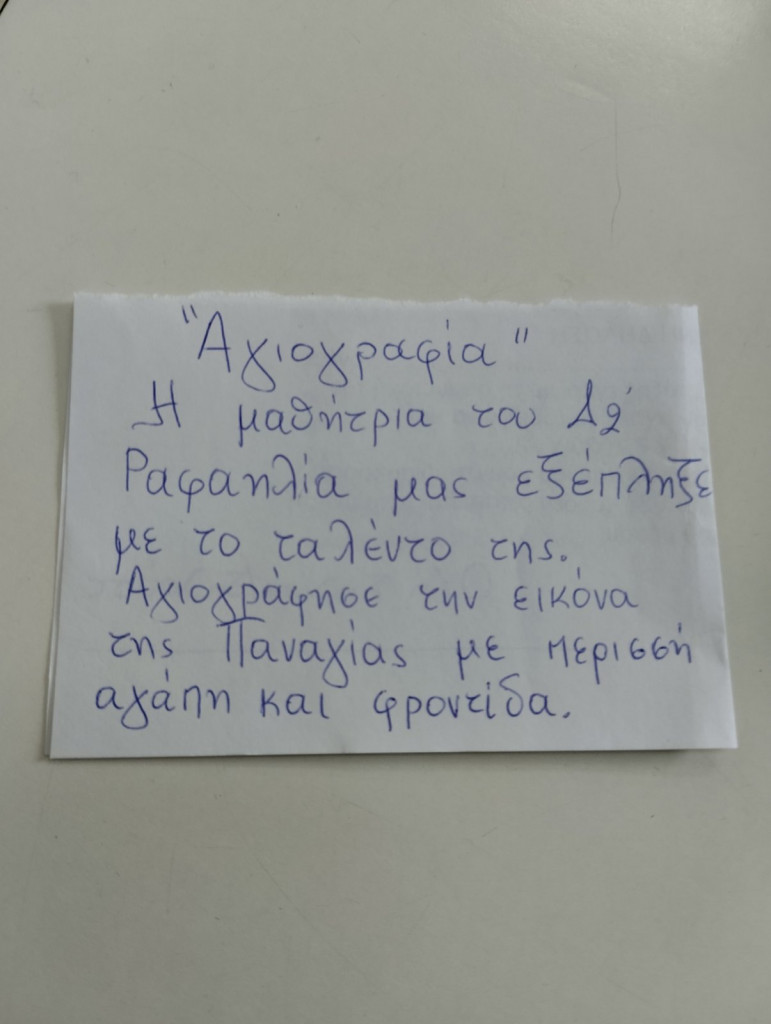 "Αγιογραφία"
Η μαθήτρια του Δ2'
Ραφαηλία μας εξέπληξε
με το ταλέντο της.
Αγιογράφησε την εικόνα
της Παναγίας με περισσή
αγάπη και φροντίδα.